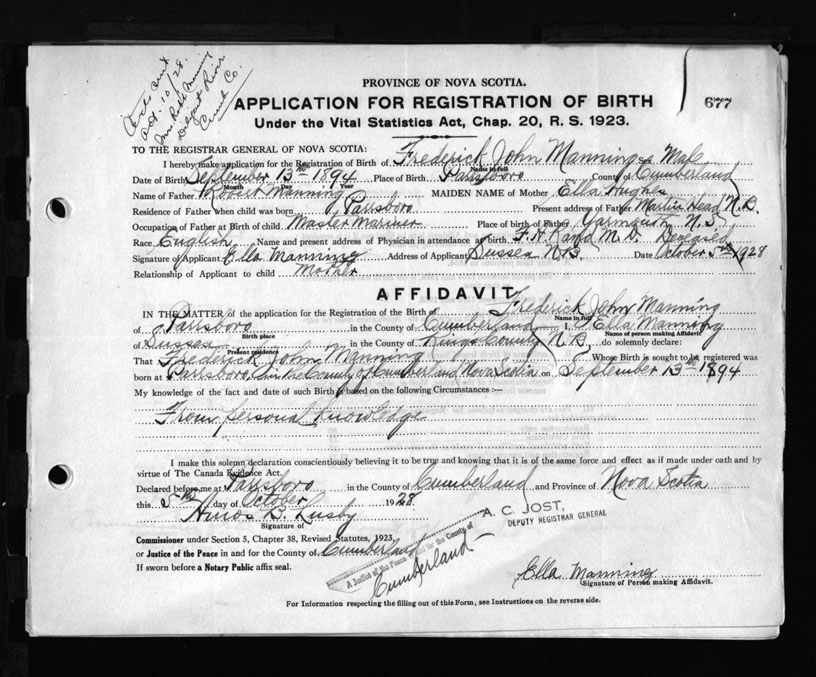 Certs sent
Oct. 10/28.
Mrs Robt Manning
River
Cumb Co.
PROVINCE OF NOVA SCOTIA.
APPLICATION FOR REGISTRATION OF BIRTH
677
Under the Vital Statistics Act, Chap. 20, R. S. 1923.
TO THE REGISTRAR GENERAL OF NOVA SCOTIA:
I hereby make application for the Registration of Birth of Frederick John Manning Sex Male
Name in full
Date of Birth September 13th 1894 Place of Birth Parrsboro County of Cumberland
Month Day Year
Name of Father Robert Manning MAIDEN NAME of Mother Ella Hughes
Residence of Father when child was born Parrsboro Present address of Father Martin Head N.B.
Occupation of Father at Birth of child Master Mariner Place of birth of Father Yarmouth N.S.
Race English Name and present address of Physician in attendance at birth F. A. Rand M. D. Deceased
Signature of Applicant Ella Manning Address of Applicant Sussex N.B. Date October 5th 1928
Relationship of Applicant to child Mother
AFFIDAVIT
IN THE MATTER of the application for the Registration of the Birth of Frederick John Manning
Name in full
of Parrsboro in the County of Cumberland I, Ella Manning
Birth place Name of person making Affidavit
of Sussex in the County of Kings County N.B. do solemnly declare:
Present residence
That Frederick John Manning Whose Birth is sought to be registered was
born at Parrsboro, in the County of Cumberland Nova Scotia on September 13th 1894
My knowledge of the fact and date of such Birth is based on the following Circumstances :—
From personal knowledge
I make this solemn declaration conscientiously believing it to be true and knowing that it is of the same force and effect as if made under oath and by
virtue of The Canada Evidence Act.
Declared before me at Parrsboro in the County of Cumberland and Province of Nova Scotia
this 5th day of October 1928.
Amos B. Lusby
Signature of
A. C. JOST,
DEPUTY REGISTRAR GENERAL
Commissioner under Section 5, Chapter 38, Revised Statutes, 1923
or Justice of the Peace in and for the County of Cumberland
If sworn before a Notary Public affix seal.
A Justice of the Peace in and for the County of
Cumberland
Ella Manning
Signature of Person making Affidavit.
For Information respecting the filling out of this Form, see Instructions on the reverse side.